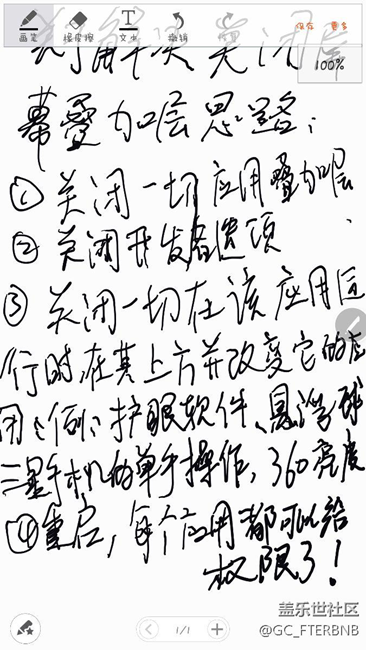 画笔 橡皮擦 文本 撤销 恢复 保存 更多
100%
了解决关闭屏
幕叠加层思路:
① 关闭一切应用叠加层、
② 关闭开发者选项
③ 关闭一切在该应用运
行时,在其上方并改变它的应
用:例:护眼软件、悬浮球
三星手机的单手操作,360亮度
④重启,每个应用都可以给
权限了!
1/1
盖乐世社区
@GC_FTERBNB